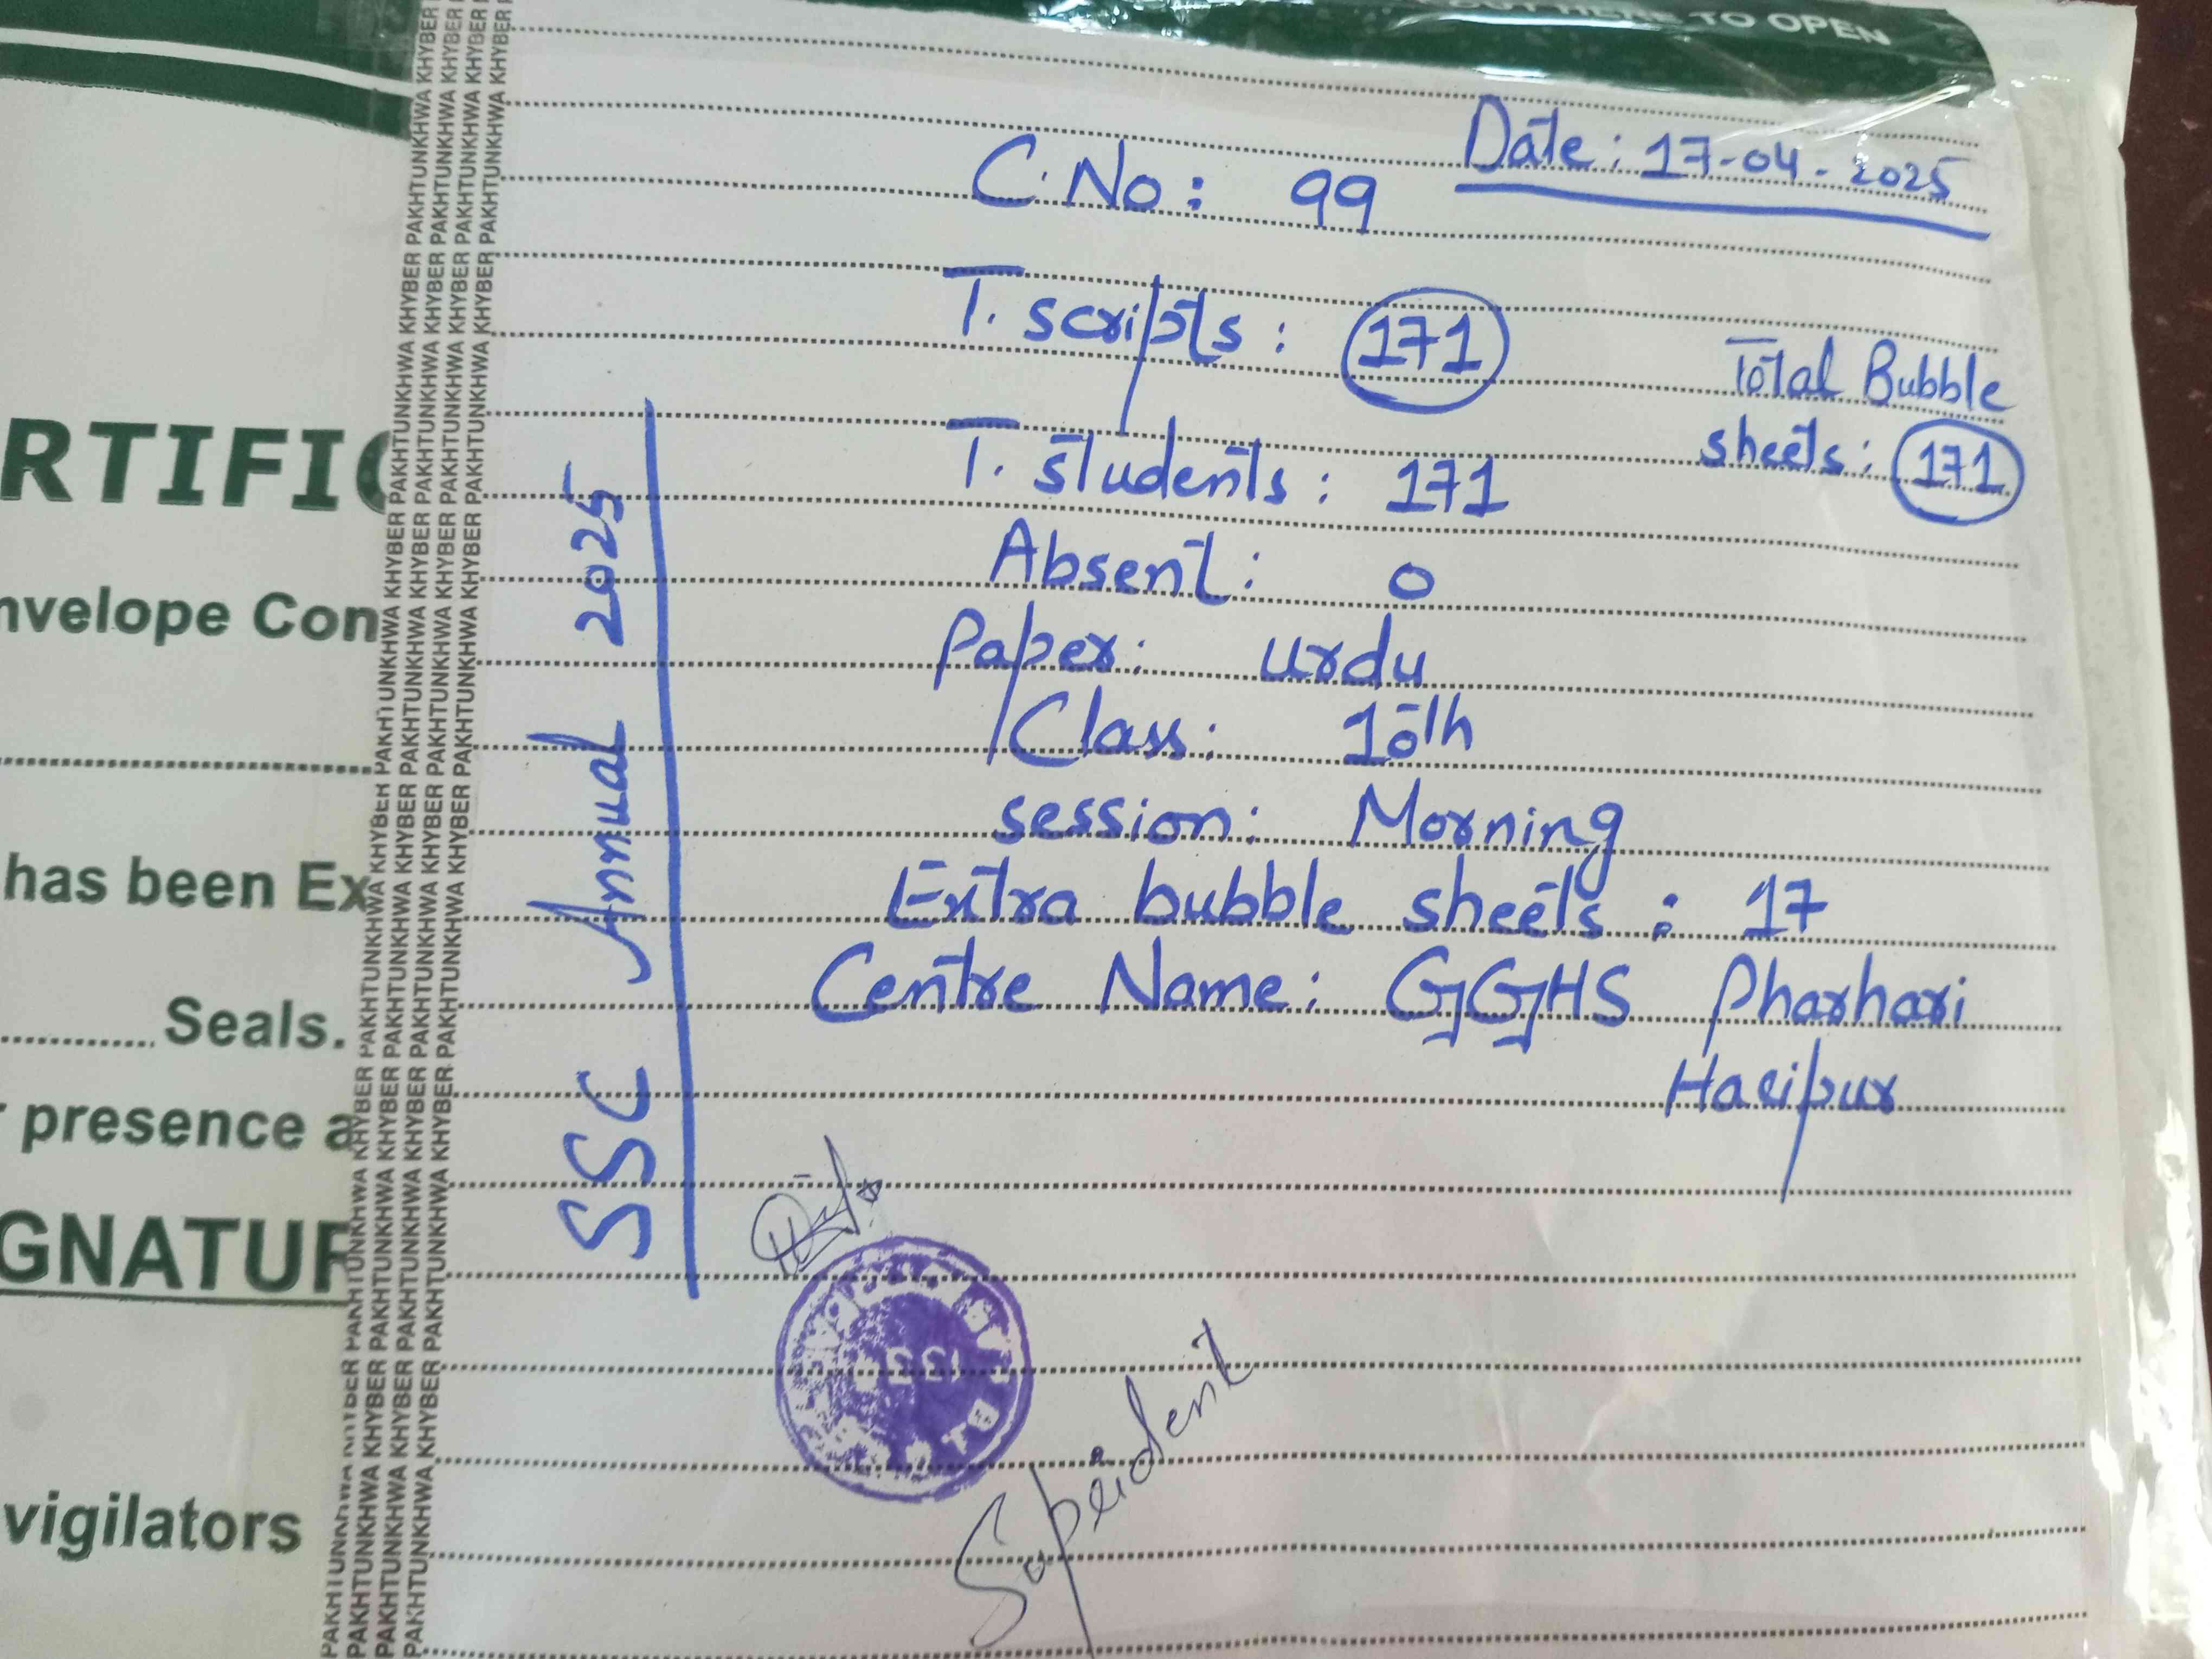 CUT HERE TO OPEN
Date: 17-04-2025
C.No: 99
T. scripts: 171
Total Bubble
sheets: 171
T. students: 171
Absent: 0
Paper: urdu
Class: 10th
session: Morning
Extra bubble sheets: 17
Centre Name: GGHS Pharhari
Haripur
SSC Annual 2025
RTIFIC
nvelope Con
has been Ex
Seals.
presence a
GNATUR
vigilators
KHYBER PAKHTUNKHWA KHYBER PAKHTUNKHWA KHYBER PAKHTUNKHWA